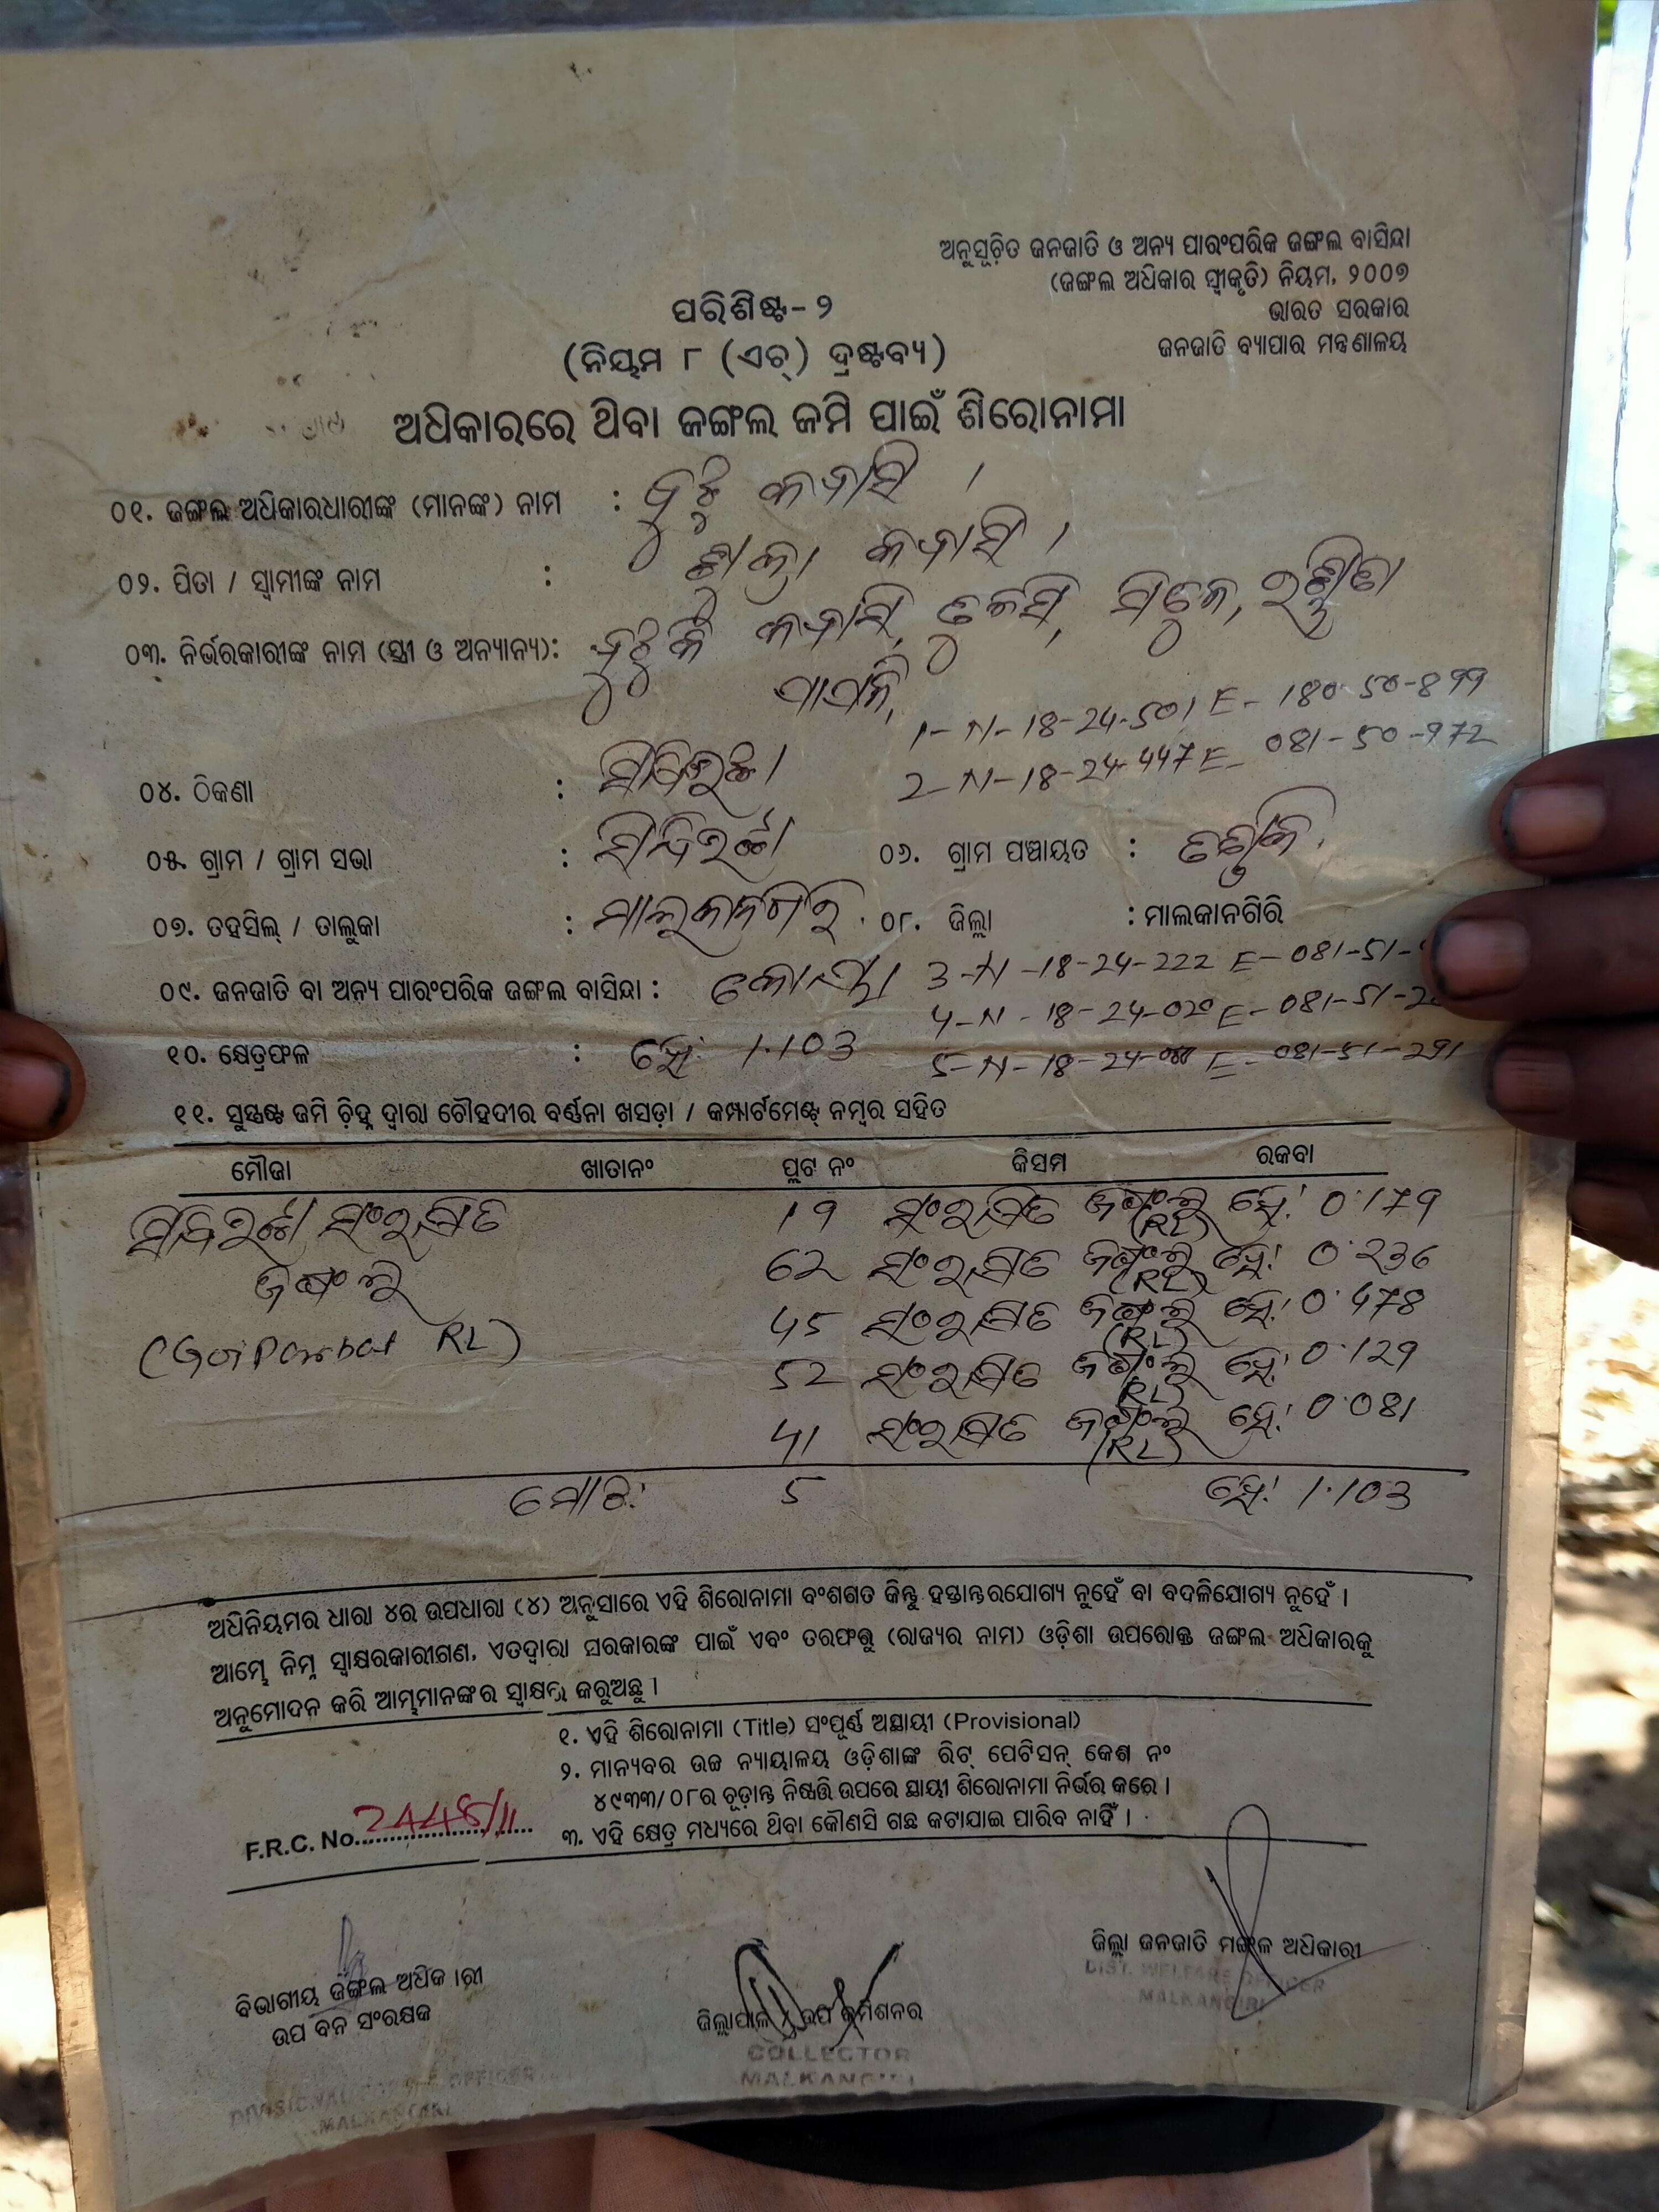 ଅନୁସୂଚିତ ଜନଜାତି ଓ ଅନ୍ୟ ପାରଂପରିକ ଜଙ୍ଗଲ ବାସିନ୍ଦା
(ଜଙ୍ଗଲ ଅଧିକାର ସ୍ୱୀକୃତି) ନିୟମ, ୨୦୦୭
ଭାରତ ସରକାର
ଜନଜାତି ବ୍ୟାପାର ମନ୍ତ୍ରଣାଳୟ
ପରିଶିଷ୍ଟ-୨
(ନିୟମ ୮ (ଏଚ୍) ଦ୍ରଷ୍ଟବ୍ୟ)
ଅଧିକାରରେ ଥିବା ଜଙ୍ଗଲ ଜମି ପାଇଁ ଶିରୋନାମା
୦୧. ଜଙ୍ଗଲ ଅଧିକାରଧାରୀଙ୍କ (ମାନଙ୍କ) ନାମ :
୦୨. ପିତା / ସ୍ୱାମୀଙ୍କ ନାମ :
୦୩. ନିର୍ଭରକାରୀଙ୍କ ନାମ (ସ୍ତ୍ରୀ ଓ ଅନ୍ୟାନ୍ୟ):
1-N-18-24-501 E- 180-50-899
2-N-18-24-447 E- 081-50-972
୦୪. ଠିକଣା :
୦୫. ଗ୍ରାମ / ଗ୍ରାମ ସଭା : ୦୬. ଗ୍ରାମ ପଞ୍ଚାୟତ :
୦୭. ତହସିଲ୍ / ତାଲୁକା : ମାଲକାନଗିରି ୦୮. ଜିଲ୍ଲା : ମାଲକାନଗିରି
୦୯. ଜନଜାତି ବା ଅନ୍ୟ ପାରଂପରିକ ଜଙ୍ଗଲ ବାସିନ୍ଦା : କୋୟା 3-N-18-24-222 E-081-51-
4-N-18-24-020 E-081-51-
୧୦. କ୍ଷେତ୍ରଫଳ : ହେ: 1.103 5-N-18-24- E-081-51-291
୧୧. ସୁସ୍ପଷ୍ଟ ଜମି ଚିହ୍ନ ଦ୍ୱାରା ଚୌହଦୀର ବର୍ଣ୍ଣନା ଖସଡ଼ା / କମ୍ପାର୍ଟମେଣ୍ଟ୍ ନମ୍ବର ସହିତ
ମୌଜା ଖାତାନଂ ପ୍ଲଟ ନଂ କିସମ ରକବା
ସଂରକ୍ଷିତ 19 ସଂରକ୍ଷିତ ଜଙ୍ଗଲ (RL) ହେ: 0.179
ଜଙ୍ଗଲ 62 ସଂରକ୍ଷିତ ଜଙ୍ଗଲ (RL) ହେ: 0.236
(RL) 45 ସଂରକ୍ଷିତ ଜଙ୍ଗଲ (RL) ହେ: 0.478
52 ସଂରକ୍ଷିତ ଜଙ୍ଗଲ (RL) ହେ: 0.129
41 ସଂରକ୍ଷିତ ଜଙ୍ଗଲ (RL) ହେ: 0.081
ମୋଟ: 5 ହେ: 1.103
ଅଧିନିୟମର ଧାରା ୪ର ଉପଧାରା (୪) ଅନୁସାରେ ଏହି ଶିରୋନାମା ବଂଶଗତ କିନ୍ତୁ ହସ୍ତାନ୍ତରଯୋଗ୍ୟ ନୁହେଁ ବା ବଦଳିଯୋଗ୍ୟ ନୁହେଁ ।
ଆମ୍ଭେ ନିମ୍ନ ସ୍ୱାକ୍ଷରକାରୀଗଣ, ଏତଦ୍ୱାରା ସରକାରଙ୍କ ପାଇଁ ଏବଂ ତରଫରୁ (ରାଜ୍ୟର ନାମ) ଓଡ଼ିଶା ଉପରୋକ୍ତ ଜଙ୍ଗଲ ଅଧିକାରକୁ
ଅନୁମୋଦନ କରି ଆମ୍ଭମାନଙ୍କର ସ୍ୱାକ୍ଷର କରୁଅଛୁ ।
୧. ଏହି ଶିରୋନାମା (Title) ସଂପୂର୍ଣ୍ଣ ଅସ୍ଥାୟୀ (Provisional)
୨. ମାନ୍ୟବର ଉଚ୍ଚ ନ୍ୟାୟାଳୟ ଓଡ଼ିଶାଙ୍କ ରିଟ୍ ପେଟିସନ୍ କେଶ ନଂ
୪୯୩୩/୦୮ର ଚୂଡ଼ାନ୍ତ ନିଷ୍ପତ୍ତି ଉପରେ ସ୍ଥାୟୀ ଶିରୋନାମା ନିର୍ଭର କରେ ।
୩. ଏହି କ୍ଷେତ୍ର ମଧ୍ୟରେ ଥିବା କୌଣସି ଗଛ କଟାଯାଇ ପାରିବ ନାହିଁ ।
F.R.C. No. 2448/11
ଜିଲ୍ଲା ଜନଜାତି ମଙ୍ଗଳ ଅଧିକାରୀ
DIST. WELFARE OFFICER
MALKANGIRI
ବିଭାଗୀୟ ଜଙ୍ଗଲ ଅଧିକାରୀ
ଉପ ବନ ସଂରକ୍ଷକ
ଜିଲ୍ଲାପାଳ / ଉପ କମିଶନର
COLLECTOR
MALKANGIRI
DIVISIONAL FOREST OFFICER
MALKANGIRI